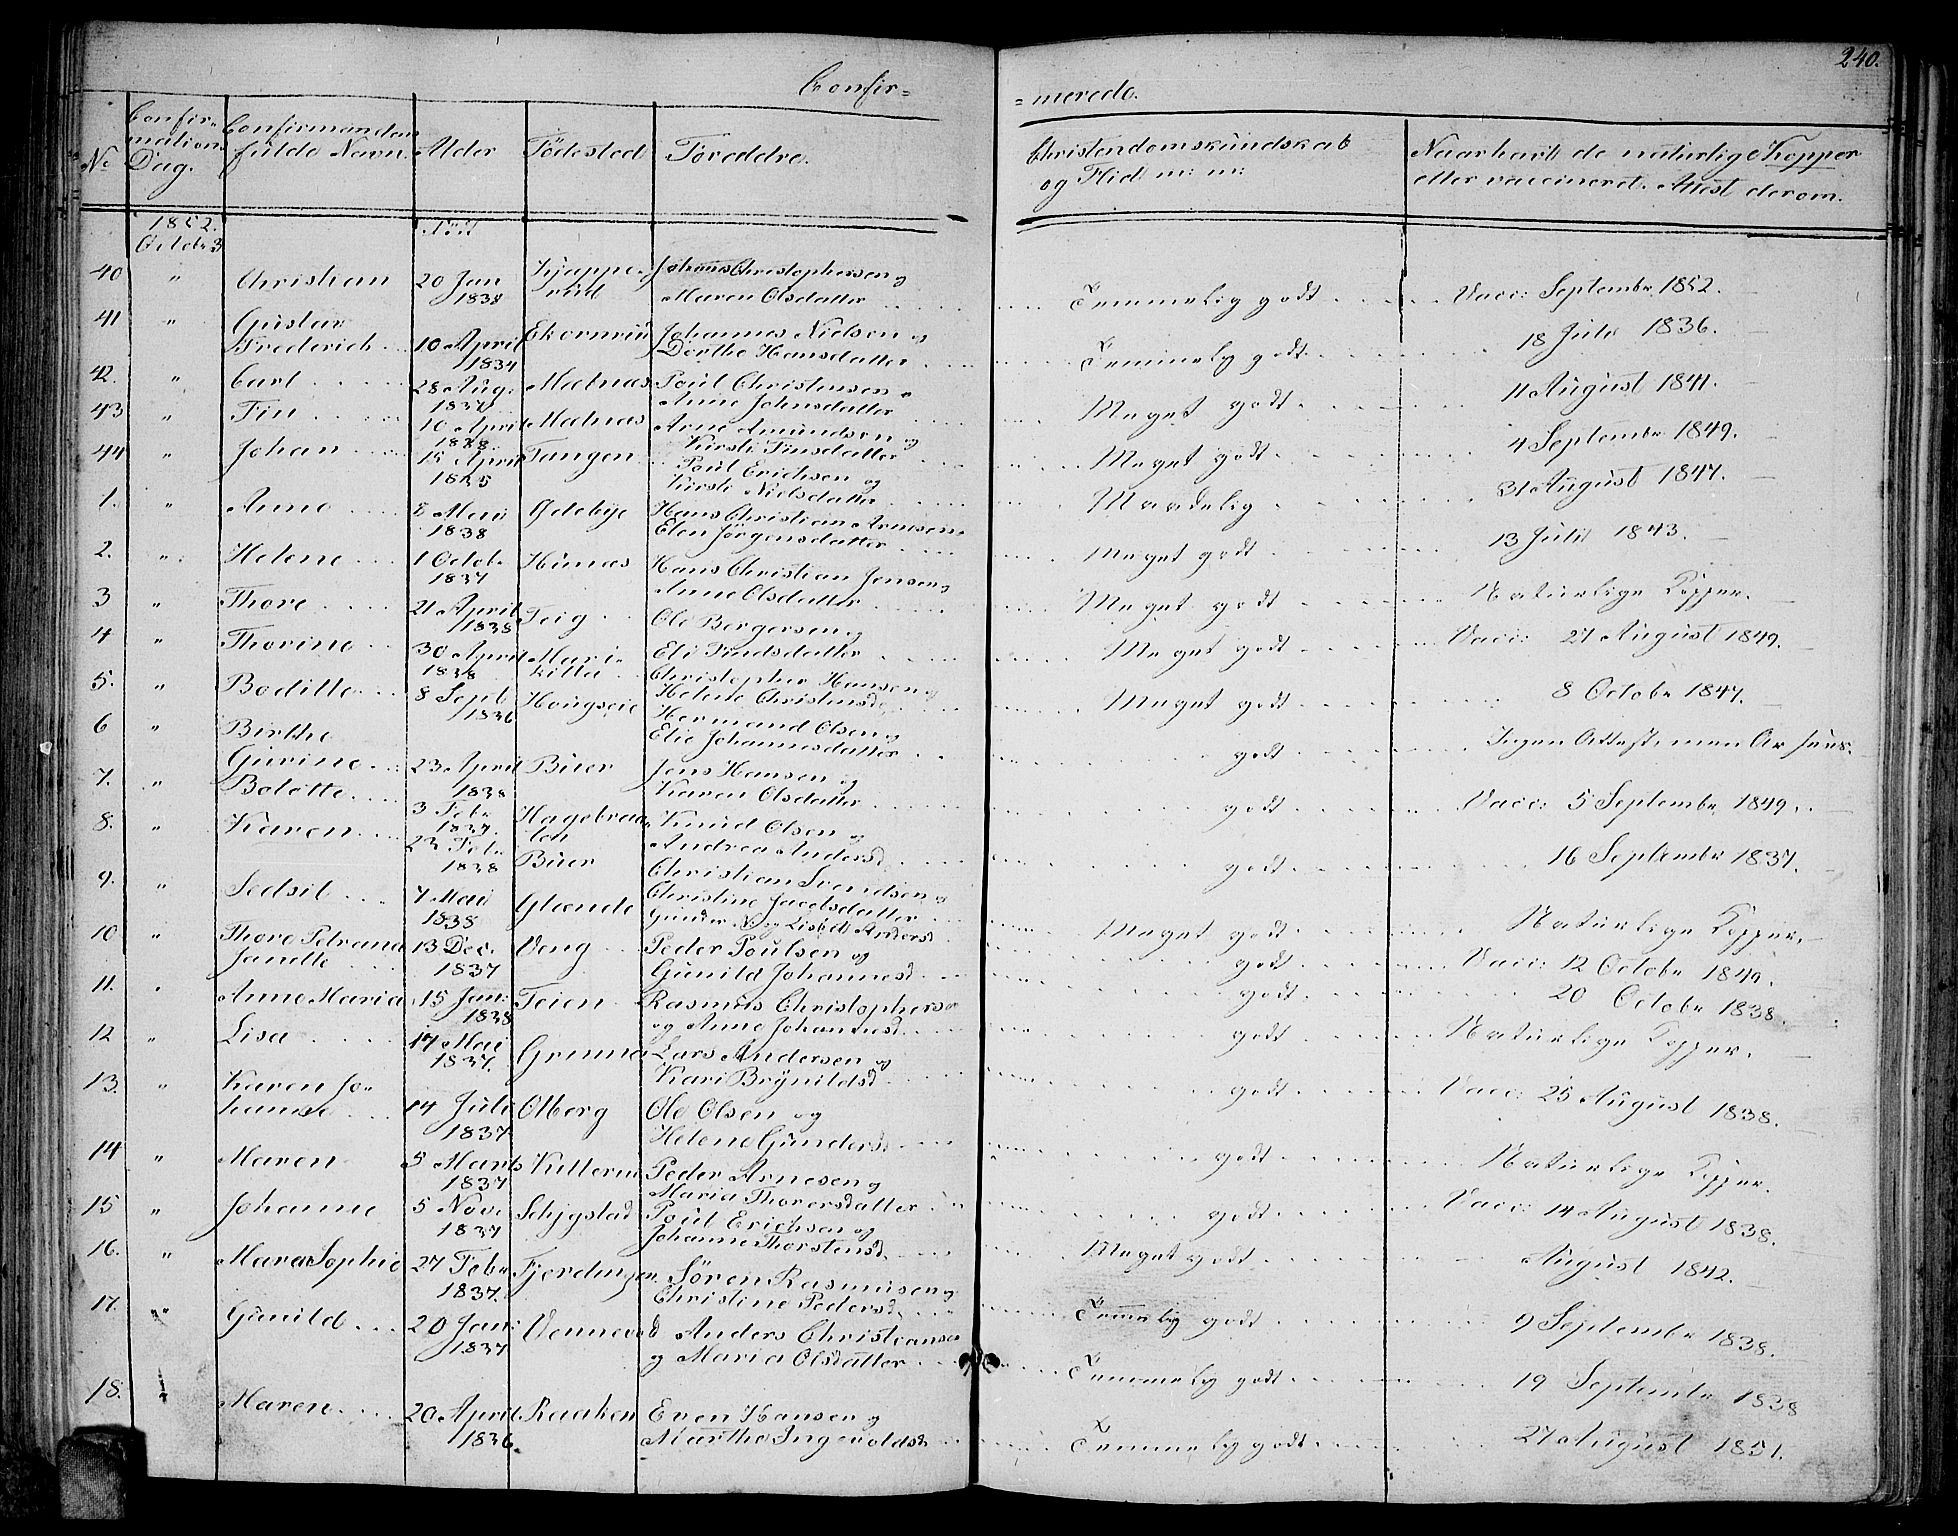 240.
Confir= =merede.
No Confirmations Dag. Confirmandens fulde Navn. Alder Födested Foreldre. Christendomskundskab og Flid m: m: Naar havt de naturlige Kopper eller vaccineret. Attest derom.
1852. Octobr 3
40 " Christian 20 Jan 1838 Johans Christophersen og Maren Olsdatter Temmelig godt Vacc: Septembr 1852.
41 " Gustav Frederich 10 April 1834 Ekornrüd Johannes Nielsen og Dorthe Hansdatter Temmelig godt 18 Juli 1836.
42. " Carl 28 Aug. 1837 Mælnæs Poul Christensen o Anne Johnsdatter Meget godt 11 August 1841.
43 " Fin 10 April 1838. Mælnæs Arne Amundsen og Kirsti Finsdatter Meget godt 4 Septembr 1849.
44 " Johan 15 April Tangen Poul Erichsen og Kirsti Nielsdatter Maadelig 31 August 1847.
1. " Anne 8 Mai 1838 Hans Christian Arnesen Elen Jörgensdatter Meget godt 13 Juli 1843.
2. " Helene 1 Octobr 1837 Hünæs Hans Christian Jensen og Anne Olsdatter Meget godt Naturlige Kopper.
3 " Thore 21 April 1838 Teig Ole Bergersen og Eli Findsdatter Meget godt Vacc: 27 August 1849.
4 " Thorine 30 April 1838 Christopher Hansen og Helene Christiansd Meget godt 8 Octobr 1847.
5. " Bodille 8 Septb 1836 Hougseie Hermand Olsen og Elie Johannesdatter godt Ingen Attest, men
6 " Birthe Gurine 23 April 1838 Büer Jens Hansen og Karen Olsdatter godt Vacc: 5 Septembr 1849.
7. " Bolette 3 Febr 1837. Hagebraaten Knud Olsen og Andrea Andersd godt 16 Septembr 1837.
8. " Karen 23 Feb. 1838 Büer Christian Svendsen og Christine Jacobsdatter Meget godt Naturlige Kopper.
9. " Sedsil 7 Mai 1838 Glænde godt Vacc: 12 Octobr 1849.
10 " Thore Petrana Janette 13 Dec. 1837 Veng Peder Poulsen og Gunild Johannesd. godt 20 Octobr 1838.
11. " Anne Maria 15 Jan: 1838 Teien Rasmus Christophersen og Anne Johannesd. godt Naturlige Kopper.
12 " Lisa 17 Mai 1837. Grinna Lars Andersen og Kari Brynildsd godt Vacc: 25 August 1838.
13. " Karen Johanne 14 Juli 1837 Olberg Ole Olsen og Helene Gundersd godt Naturlige Kopper.
14 " Maren 5 Marts 1837 Peder Arnesen og Maria Thoresdatter godt Vacc: 14 August 1838.
15 " Johanne 5 Nov. 1837 Poul Erichsen og Johanne Thorstensd Meget godt August 1842.
16. " Mara Sophie 27 Febr 1837. Fjerdingen Sören Rasmusen og Christine Pedersd. Temmelig godt 9 Septembr 1838.
17. " Gunild 20 Jan: 1837 Vennevold Anders Christiansen og Maria Olsdatter Temmelig godt 19 Septembr 1838
18. Maren 20 April 1836. Raaken Even Hansen og Marthe Ingevoldsd Temmelig godt 27 August 1851.